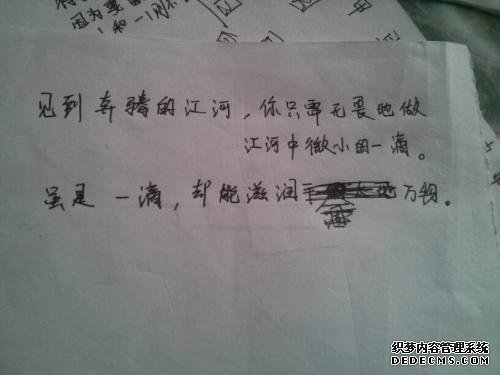 因为要
和一
见到奔腾的江河，你只需无畏地做
江河中微小的一滴。
虽是一滴，却能滋润万物。
织梦内容管理系统
DEDECMS.COM